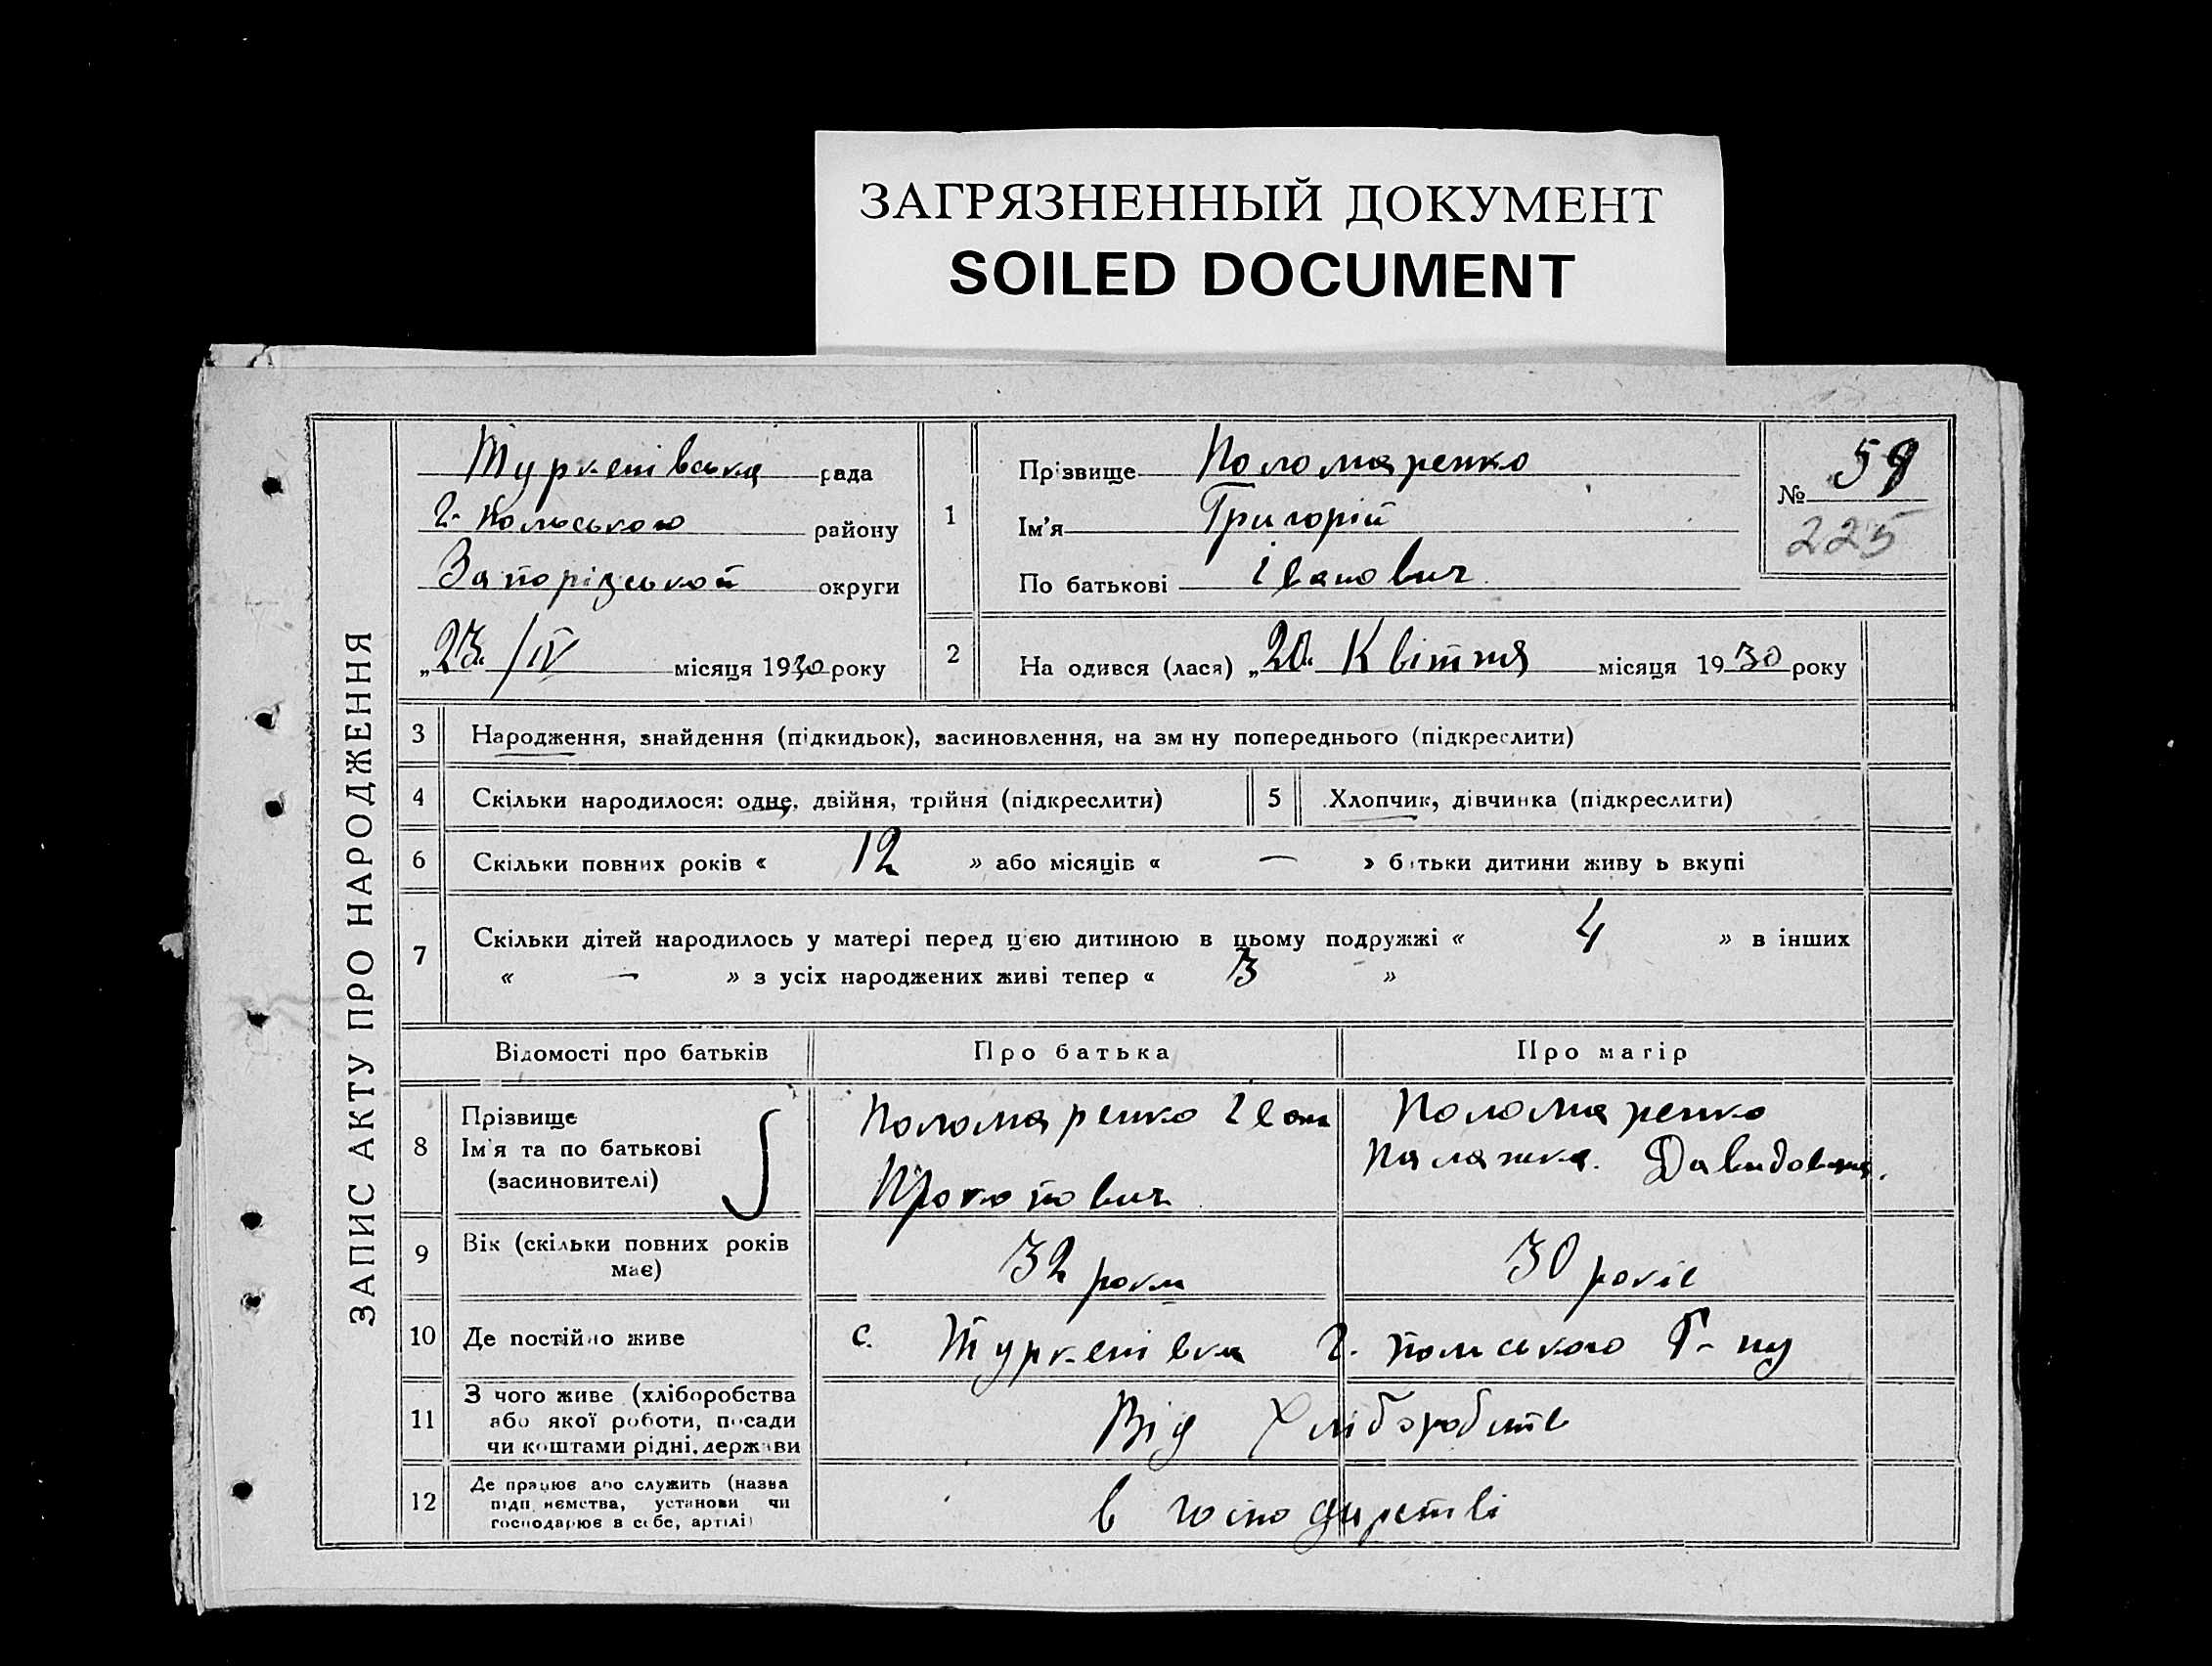 ЗАГРЯЗНЕННЫЙ ДОКУМЕНТ
SOILED DOCUMENT
ЗАПИС АКТУ ПРО НАРОДЖЕННЯ
Туркенівська рада
Г. Польського району
Запорізької округи
„23“ /IV місяця 1930 року
1
Прізвище Поломаренко
Ім'я Григорій
По батькові Іванович
№ 59
225
2 На одився (лася) „20“ Квітня місяця 1930 року
3 Народження, знайдення (підкидьок), засиновлення, на зм ну попереднього (підкреслити)
4 Скільки народилося: одне, двійня, трійня (підкреслити)
5 Хлопчик, дівчинка (підкреслити)
6 Скільки повних років « 12 » або місяців « — » батьки дитини живу ь вкупі
7 Скільки дітей народилось у матері перед цією дитиною в цьому подружжі « 4 » в інших
« — » з усіх народжених живі тепер « 3 »
Відомості про батьків Про батька Про матір
8
Прізвище
Ім'я та по батькові
(засиновителі)
Поломаренко Іван
Прокопович
Поломаренко
Палажка. Давидовна.
9 Вік (скільки повних років
має)
32 роки
30 років
10 Де постійно живе
с. Туркенівки Г. Польського Р-ну
11 З чого живе (хліборобства
або якої роботи, посади
чи коштами рідні, держави
Від Хліборобств
12 Де працює або служить (назва
підп иємства, установи чи
господарює в себе, артілі)
в господарстві